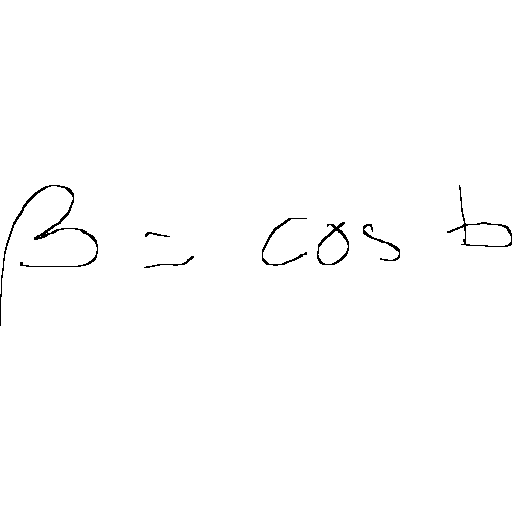 β = cos b